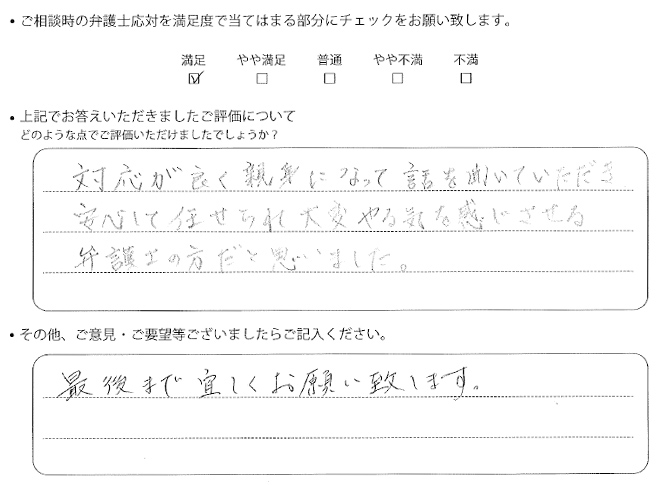 • ご相談時の弁護士応対を満足度で当てはまる部分にチェックをお願い致します。
満足 やや満足 普通 やや不満 不満
☑ □ □ □ □
• 上記でお答えいただきましたご評価について
どのような点でご評価いただけましたでしょうか?
対応が良く親身になって話を聞いていただき
安心して任せられ大変やる気を感じさせる
弁護士の方だと思いました。
• その他、ご意見・ご要望等ございましたらご記入ください。
最後まで宜しくお願い致します。